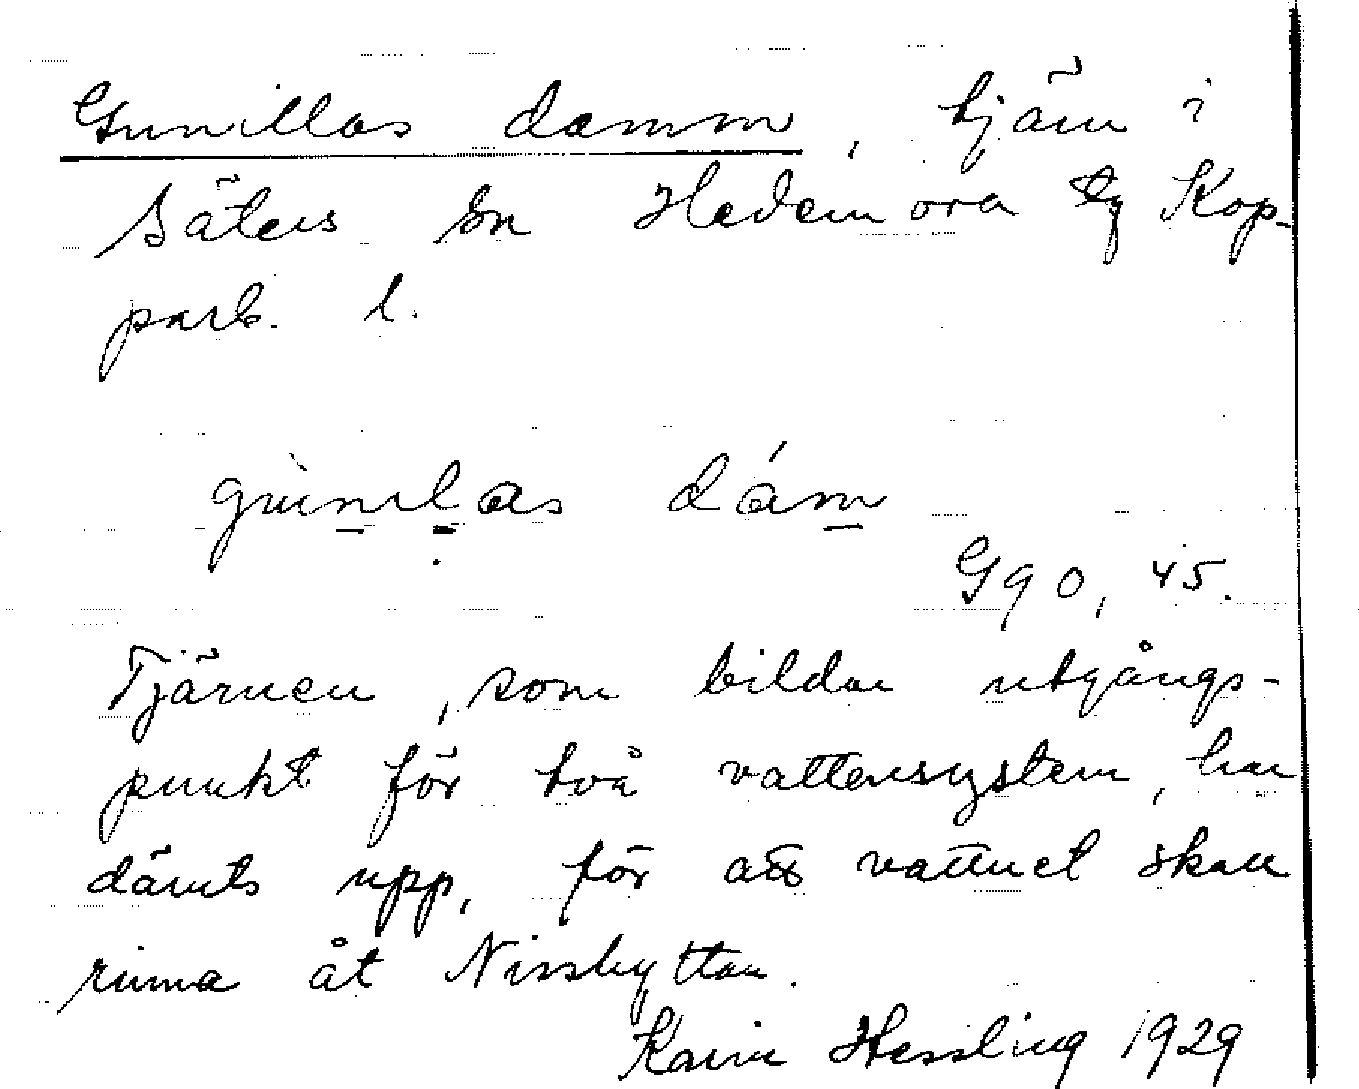 Gunillas damm, tjärn i
Säters sn Hedemora tg Kop-
parb. l.
gùnilas dám
Gg 0, 45.
Tjärnen, som bildar utgångs-
punkt för två vattensystem, har
dämts upp, för att vattnet skall
rinna åt Nisshyttan.
Karin Hessling 1929